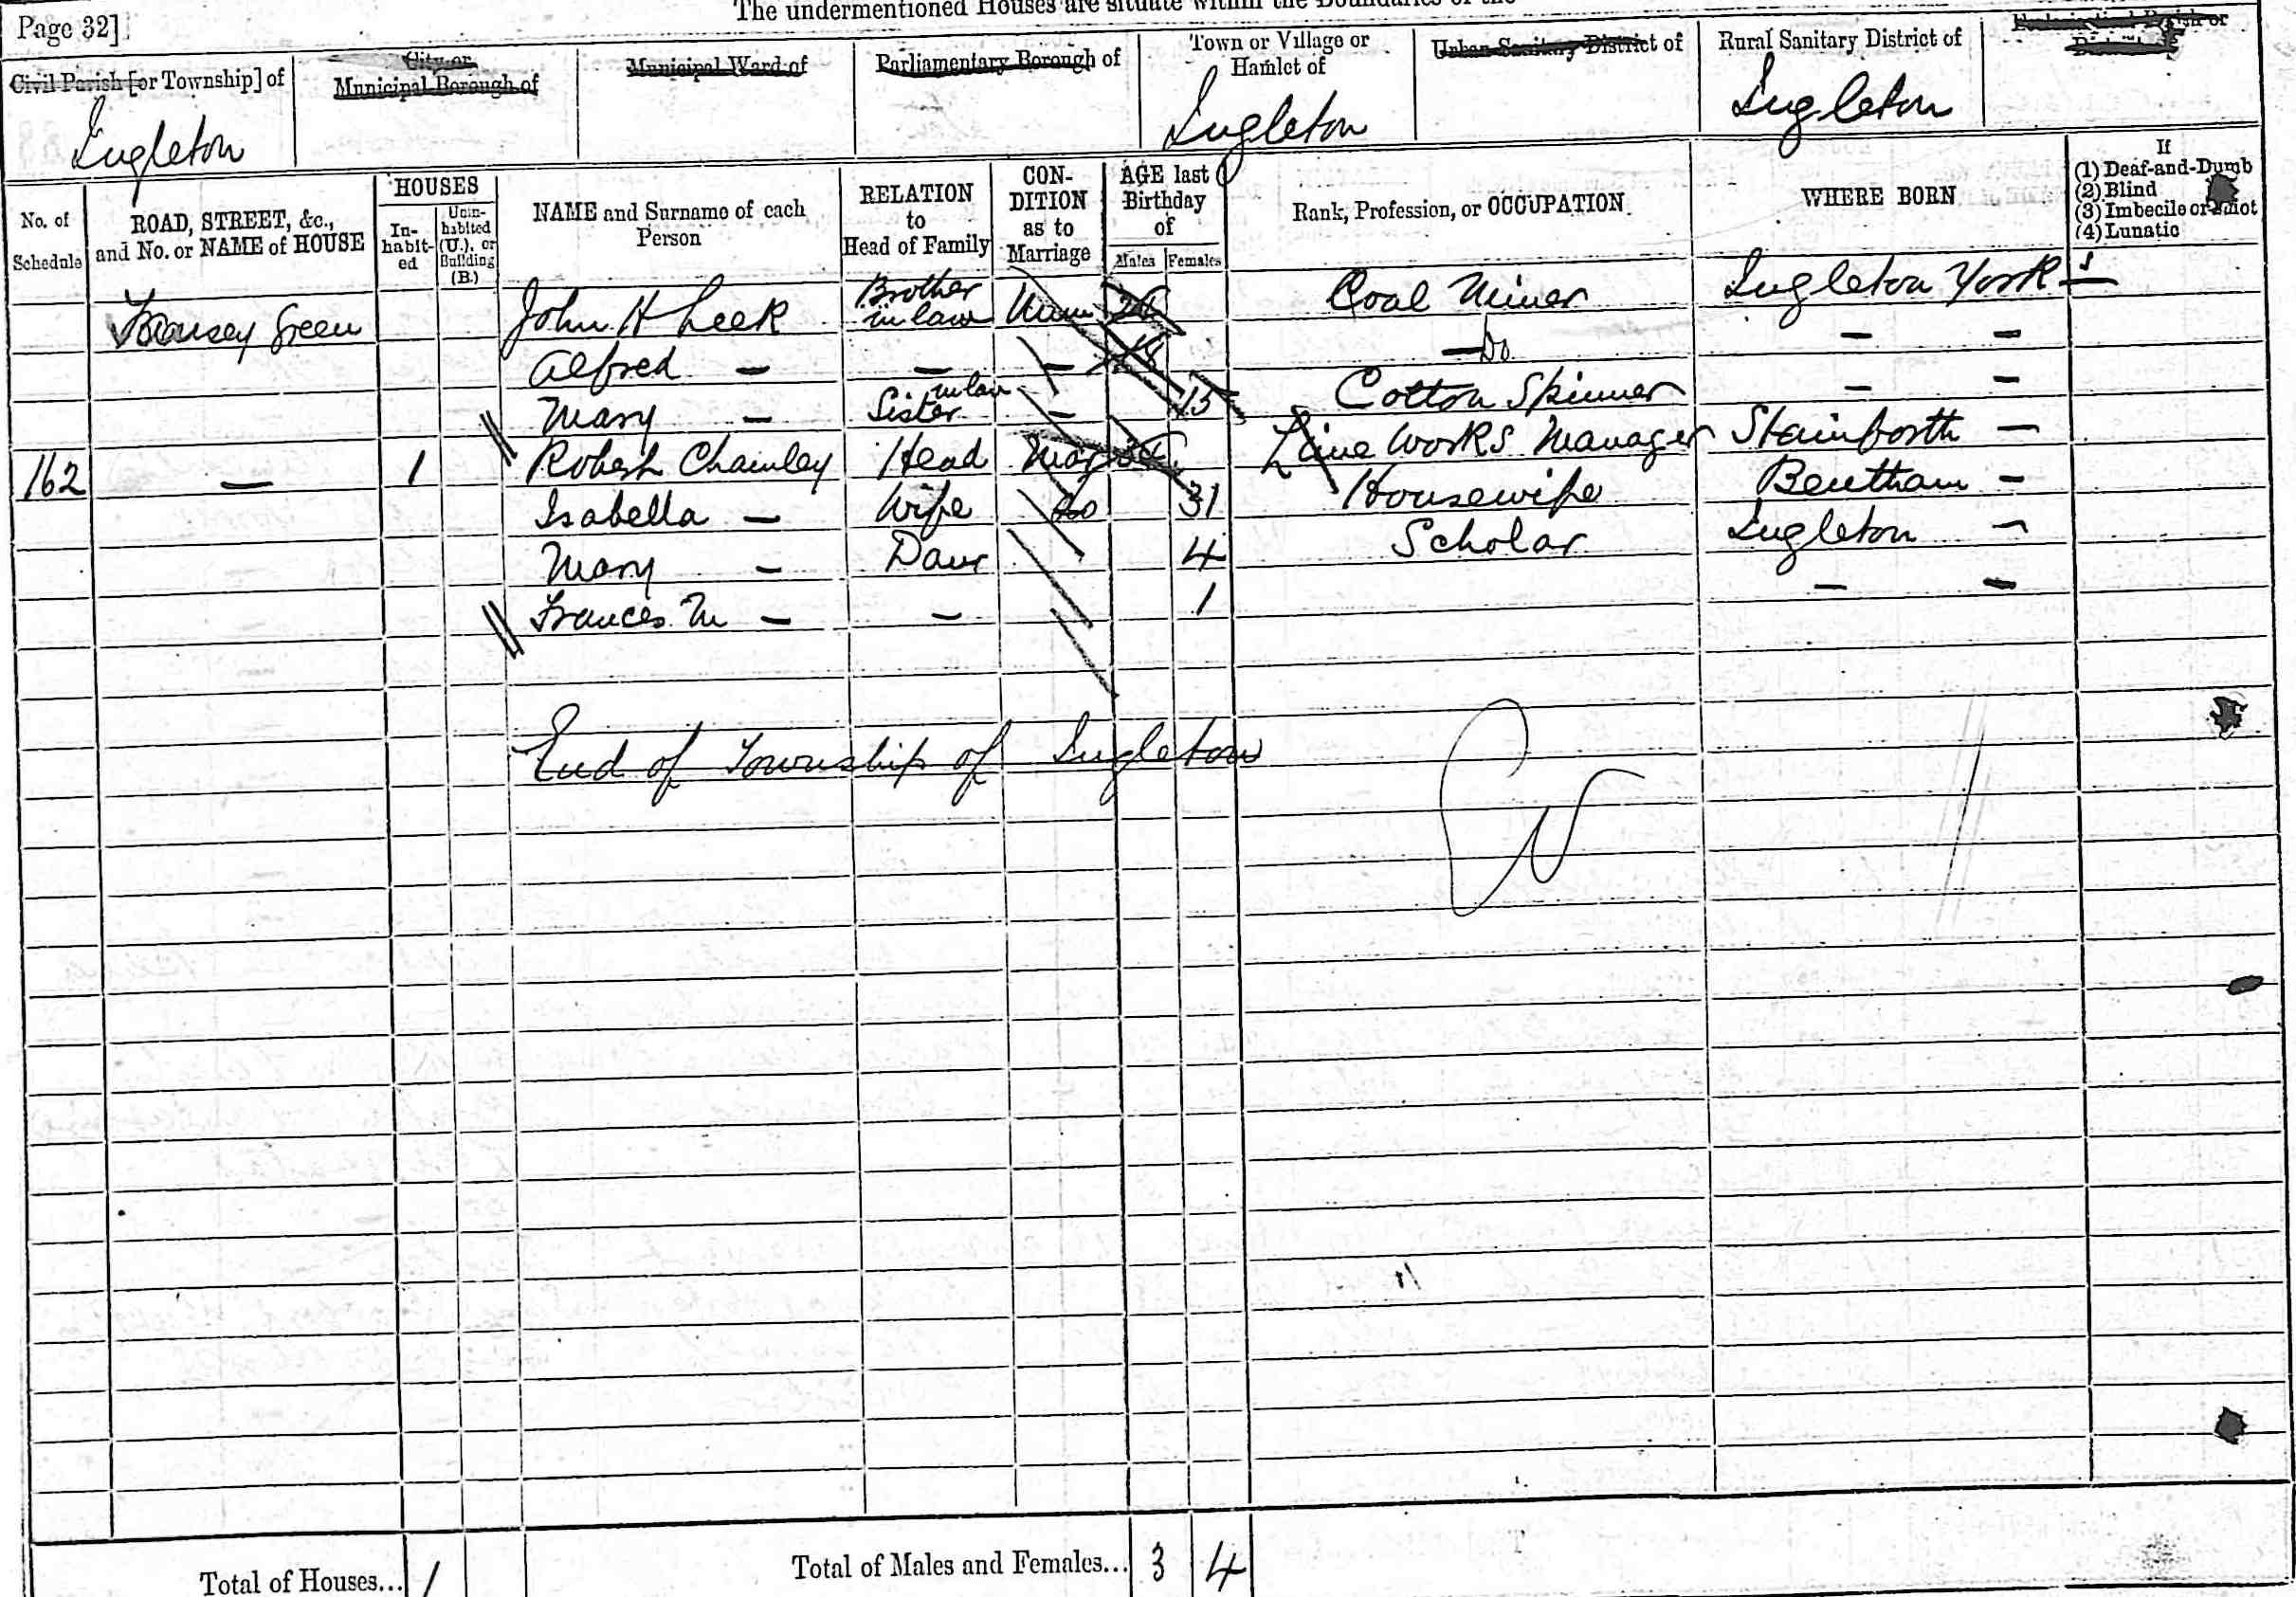 The undermentioned Houses are situate within the Boundaries of the
Page 32]
Civil Parish [or Township] of
City or Municipal Borough of
Municipal Ward of
Parliamentary Borough of
Town or Village or Hamlet of
Urban Sanitary District of
Rural Sanitary District of
Ecclesiastical Parish or District of
Ingleton
Ingleton
Ingleton
No. of Schedule
ROAD, STREET, &c., and No. or NAME of HOUSE
HOUSES
In-habit-ed
Unin-habited (U.), or Building (B.)
NAME and Surname of each Person
RELATION to Head of Family
CON-DITION as to Marriage
AGE last Birthday of
Males Females
Rank, Profession, or OCCUPATION
WHERE BORN
If
(1) Deaf-and-Dumb
(2) Blind
(3) Imbecile or Idiot
(4) Lunatic
Green John H Leek Brother in law Unm Coal Miner Ingleton York
Alfred — — — 18 — Do — —
Mary — Sister in law — 15 Cotton Spinner — —
162 — 1 Robert Chamley Head Mar Lime Works Manager Stainforth —
Isabella — Wife Do 31 Housewife Bentham —
Mary — Daur 4 Scholar Ingleton —
Frances M — — 1 — —
End of Township of Ingleton
Total of Houses... 1
Total of Males and Females... 3 4